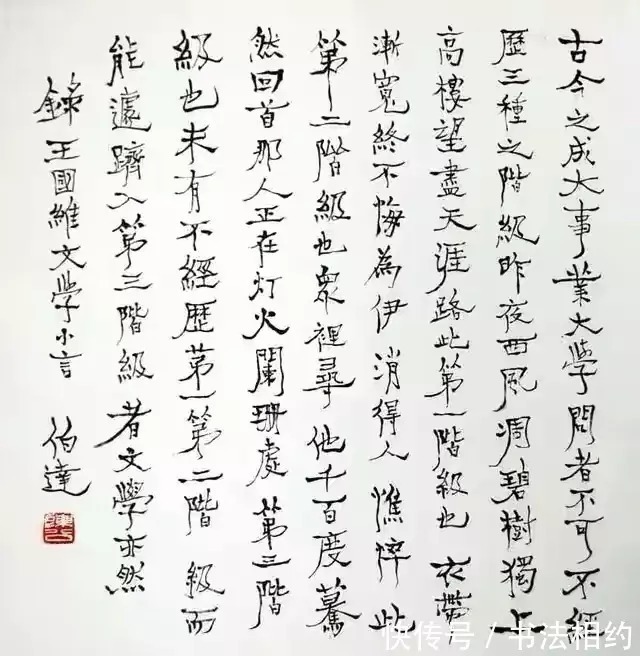 古今之成大事業大學問者不可不經
歷三種之階級昨夜西風凋碧樹獨上
高樓望盡天涯路此第一階級也衣帶
漸寬終不悔為伊消得人憔悴此
第二階級也眾裡尋他千百度驀
然回首那人正在灯火闌珊處第三階
級也未有不經歷第一第二階級而
能遽躋入第三階級者文學亦然
錄王國維文學小言 伯達
快传号/书法相约